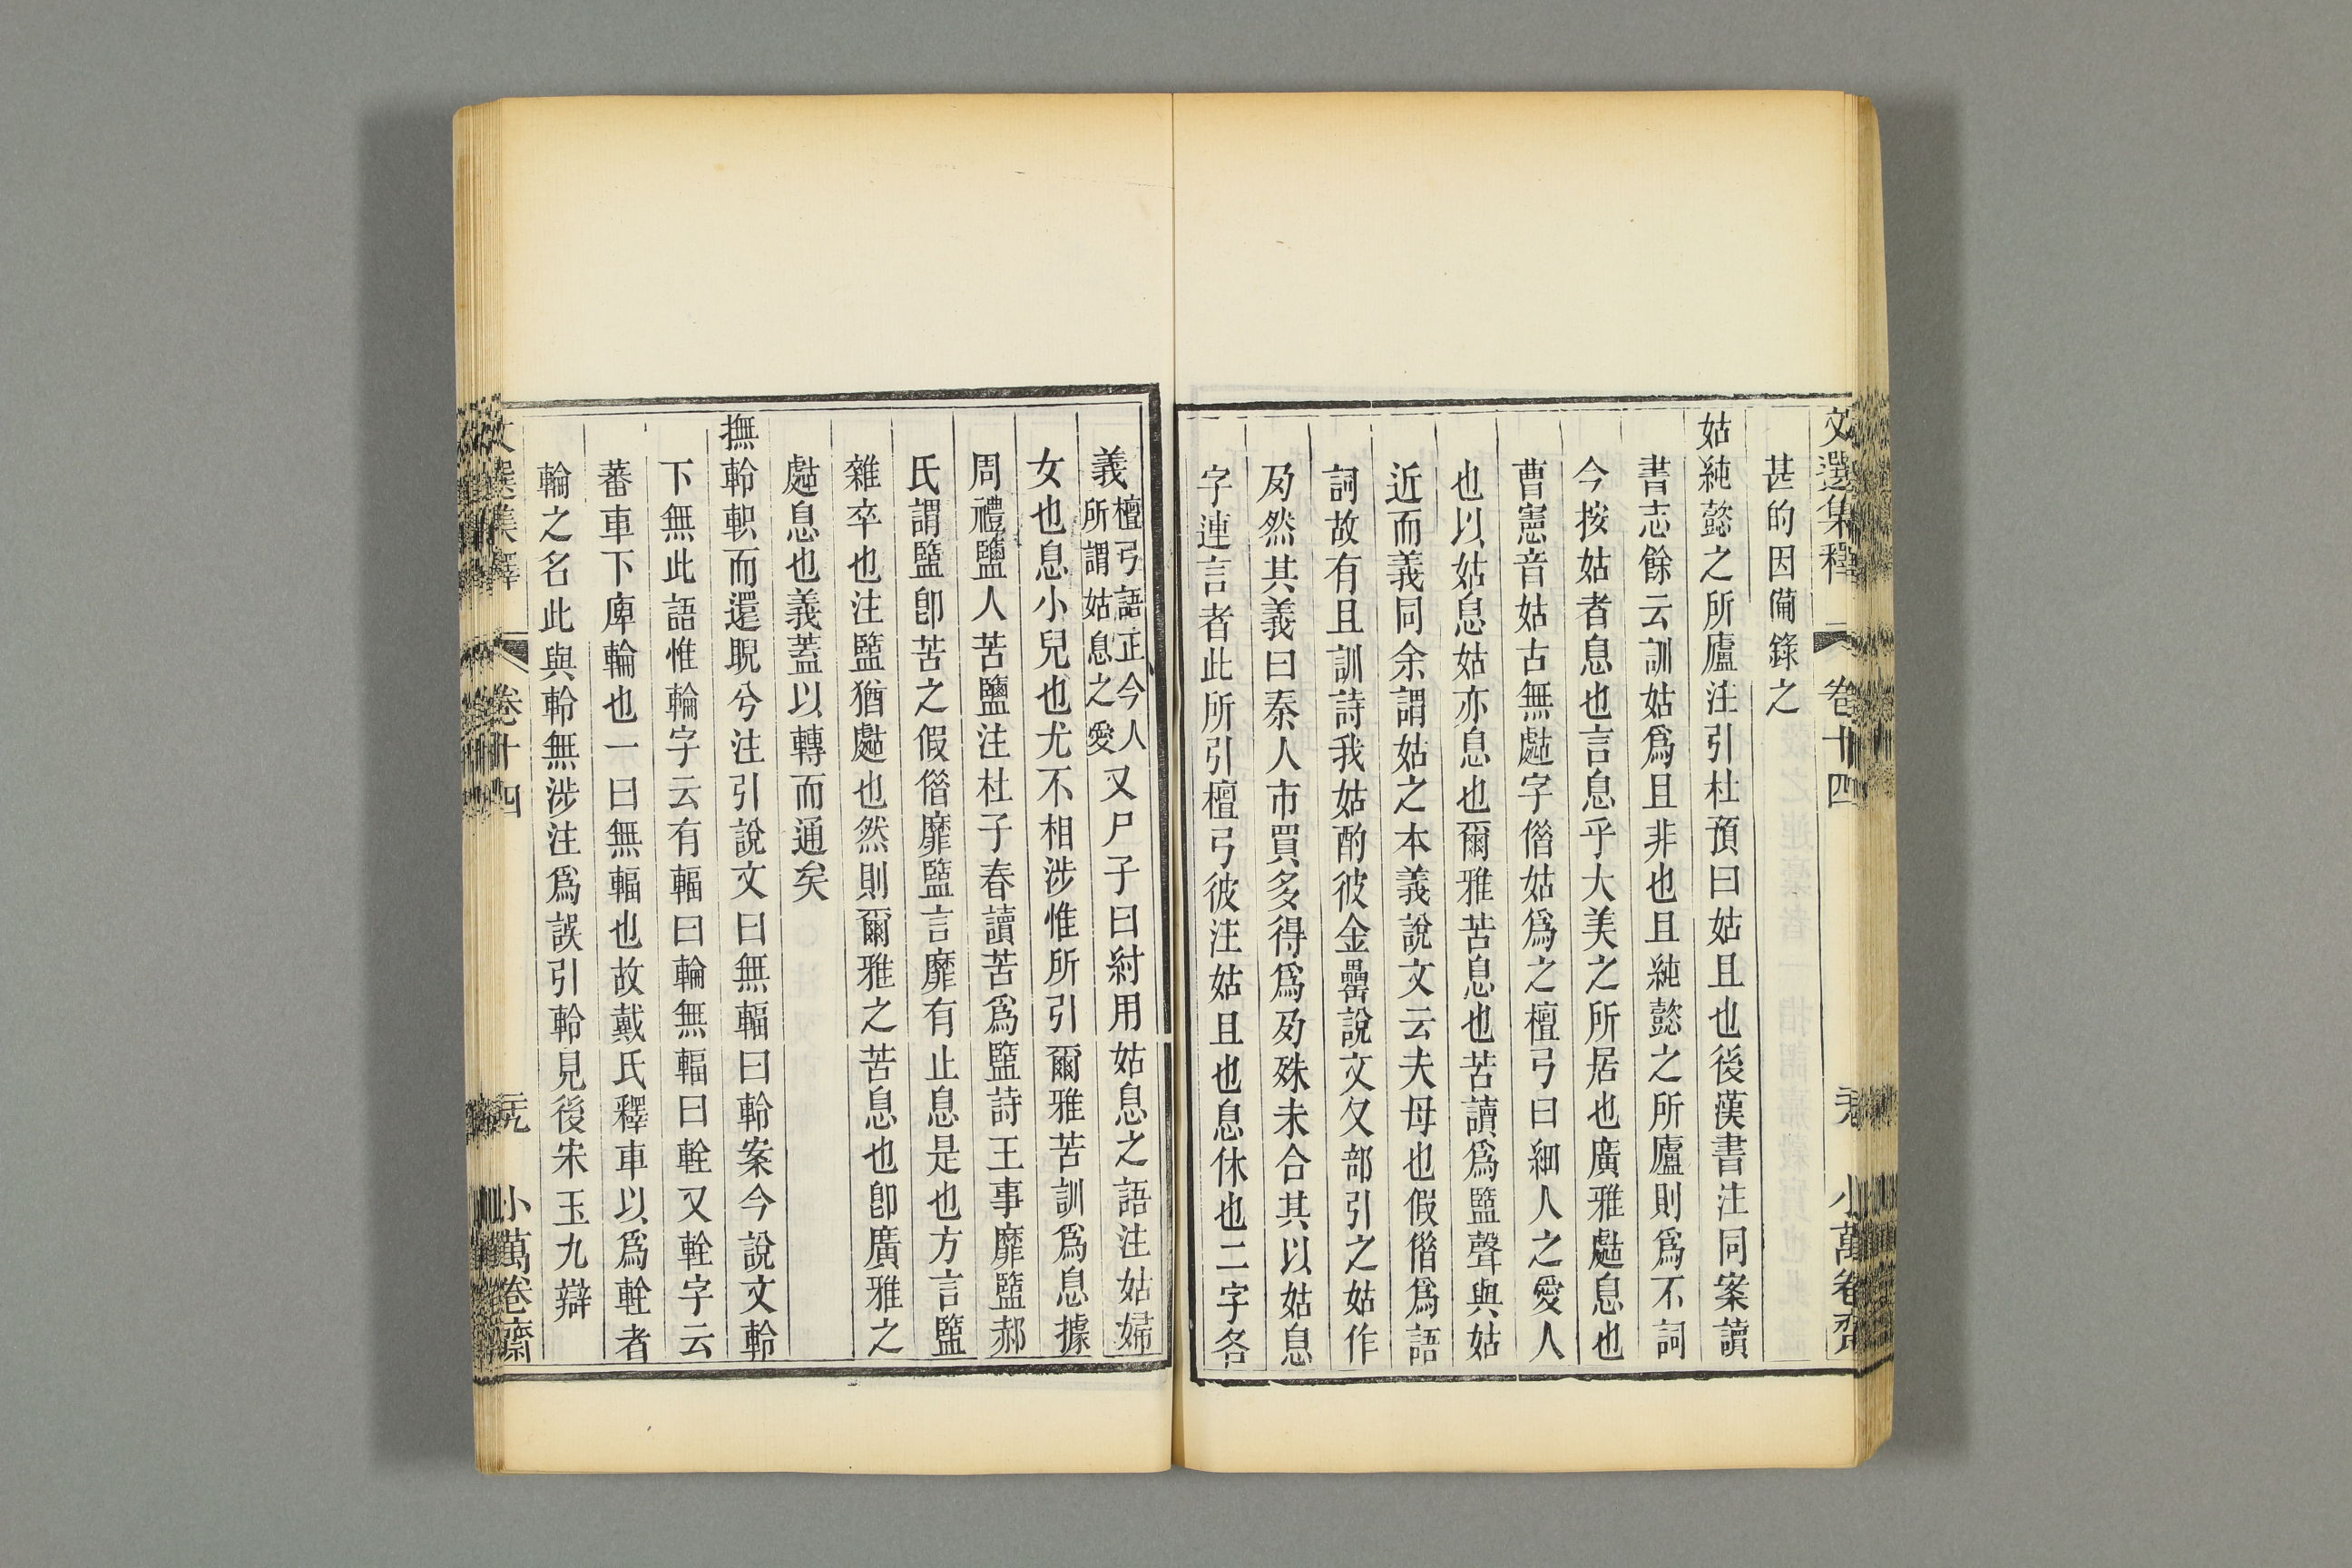 文選集釋 卷十四 小萬卷齋
甚的因備錄之
姑純懿之所廬注引杜預曰姑且也後漢書注同案讀
書志餘云訓姑爲且非也且純懿之所廬則爲不詞
今按姑者息也言息乎大美之所居也廣雅𠩺息也
曹憲音姑古無𠩺字偺姑爲之檀弓曰細人之愛人
也以姑息姑亦息也爾雅苦息也苦讀爲盬聲與姑
近而義同余謂姑之本義說文云夫母也假偺爲語
詞故有且訓詩我姑酌彼金罍說文夂部引之姑作
夃然其義曰秦人市買多得爲夃殊未合其以姑息
字連言者此所引檀弓彼注姑且也息休也二字各
義檀弓語正今人所謂姑息之愛又尸子曰紂用姑息之語注姑婦
女也息小兒也尤不相涉惟所引爾雅苦訓爲息據
周禮鹽人苦鹽注杜子春讀苦爲盬詩王事靡盬郝
氏謂盬卽苦之假偺靡盬言靡有止息是也方言盬
雜卒也注盬猶𠩺也然則爾雅之苦息也卽廣雅之
𠩺息也義蓋以轉而通矣
撫軨軹而還睨兮注引說文曰無輻曰軨案今說文軨
下無此語惟輪字云有輻曰輪無輻曰輇又輇字云
蕃車下庳輪也一曰無輻也故戴氏釋車以爲輇者
輪之名此與軨無涉注爲誤引軨見後宋玉九辯
文選集釋 卷十四 小萬卷齋